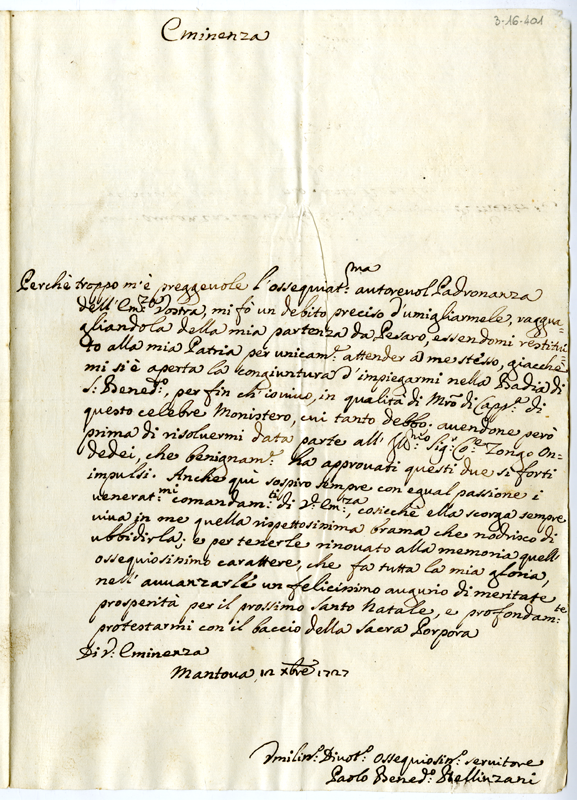 3-16-401
Eminenza
Perchè troppo m'è preggevole l'ossequiat:ma autorevol Padronanza
dell'Em:za Vostra, mi fò un debito preciso d'umigliarmele, raggua-
gliandola della mia partenza da Pesaro, essendomi restitui-
to alla mia Patria per unicam:e attender a me stesso, giacchè
mi si è aperta la congiuntura d'impiegarmi nella Badia di
S: Bened:o, per fin ch'io vivo, in qualità di Mro di Capp:a di
questo celebre Monistero, cui tanto debbo. avendone però
prima di risolvermi data parte all' Sig:r Co:e Zongo On-
dedei, che benignam:e ha approvati questi due sì forti
impulsi. Anche quì sospiro sempre con egual passione i
venerat:mi comandam:ti di V: Em:za, cosicchè ella scorga sempre
viva in me quella rispettosissima brama che nodrisco di
ubbidirla; e per tenerle rinovato alla memoria quell'
ossequiosissimo carattere, che fa tutta la mia gloria,
nell'avvanzarle un felicissimo augurio di meritate
prosperità per il prossimo Santo Natale, e profondam:te
protestarmi con il baccio della Sacra Porpora
Di V: Eminenza
Mantova 12 Xbre 1727
Umilis:o Divot:o Ossequiosis:o servitore
Paolo Bened:o Bellinzani